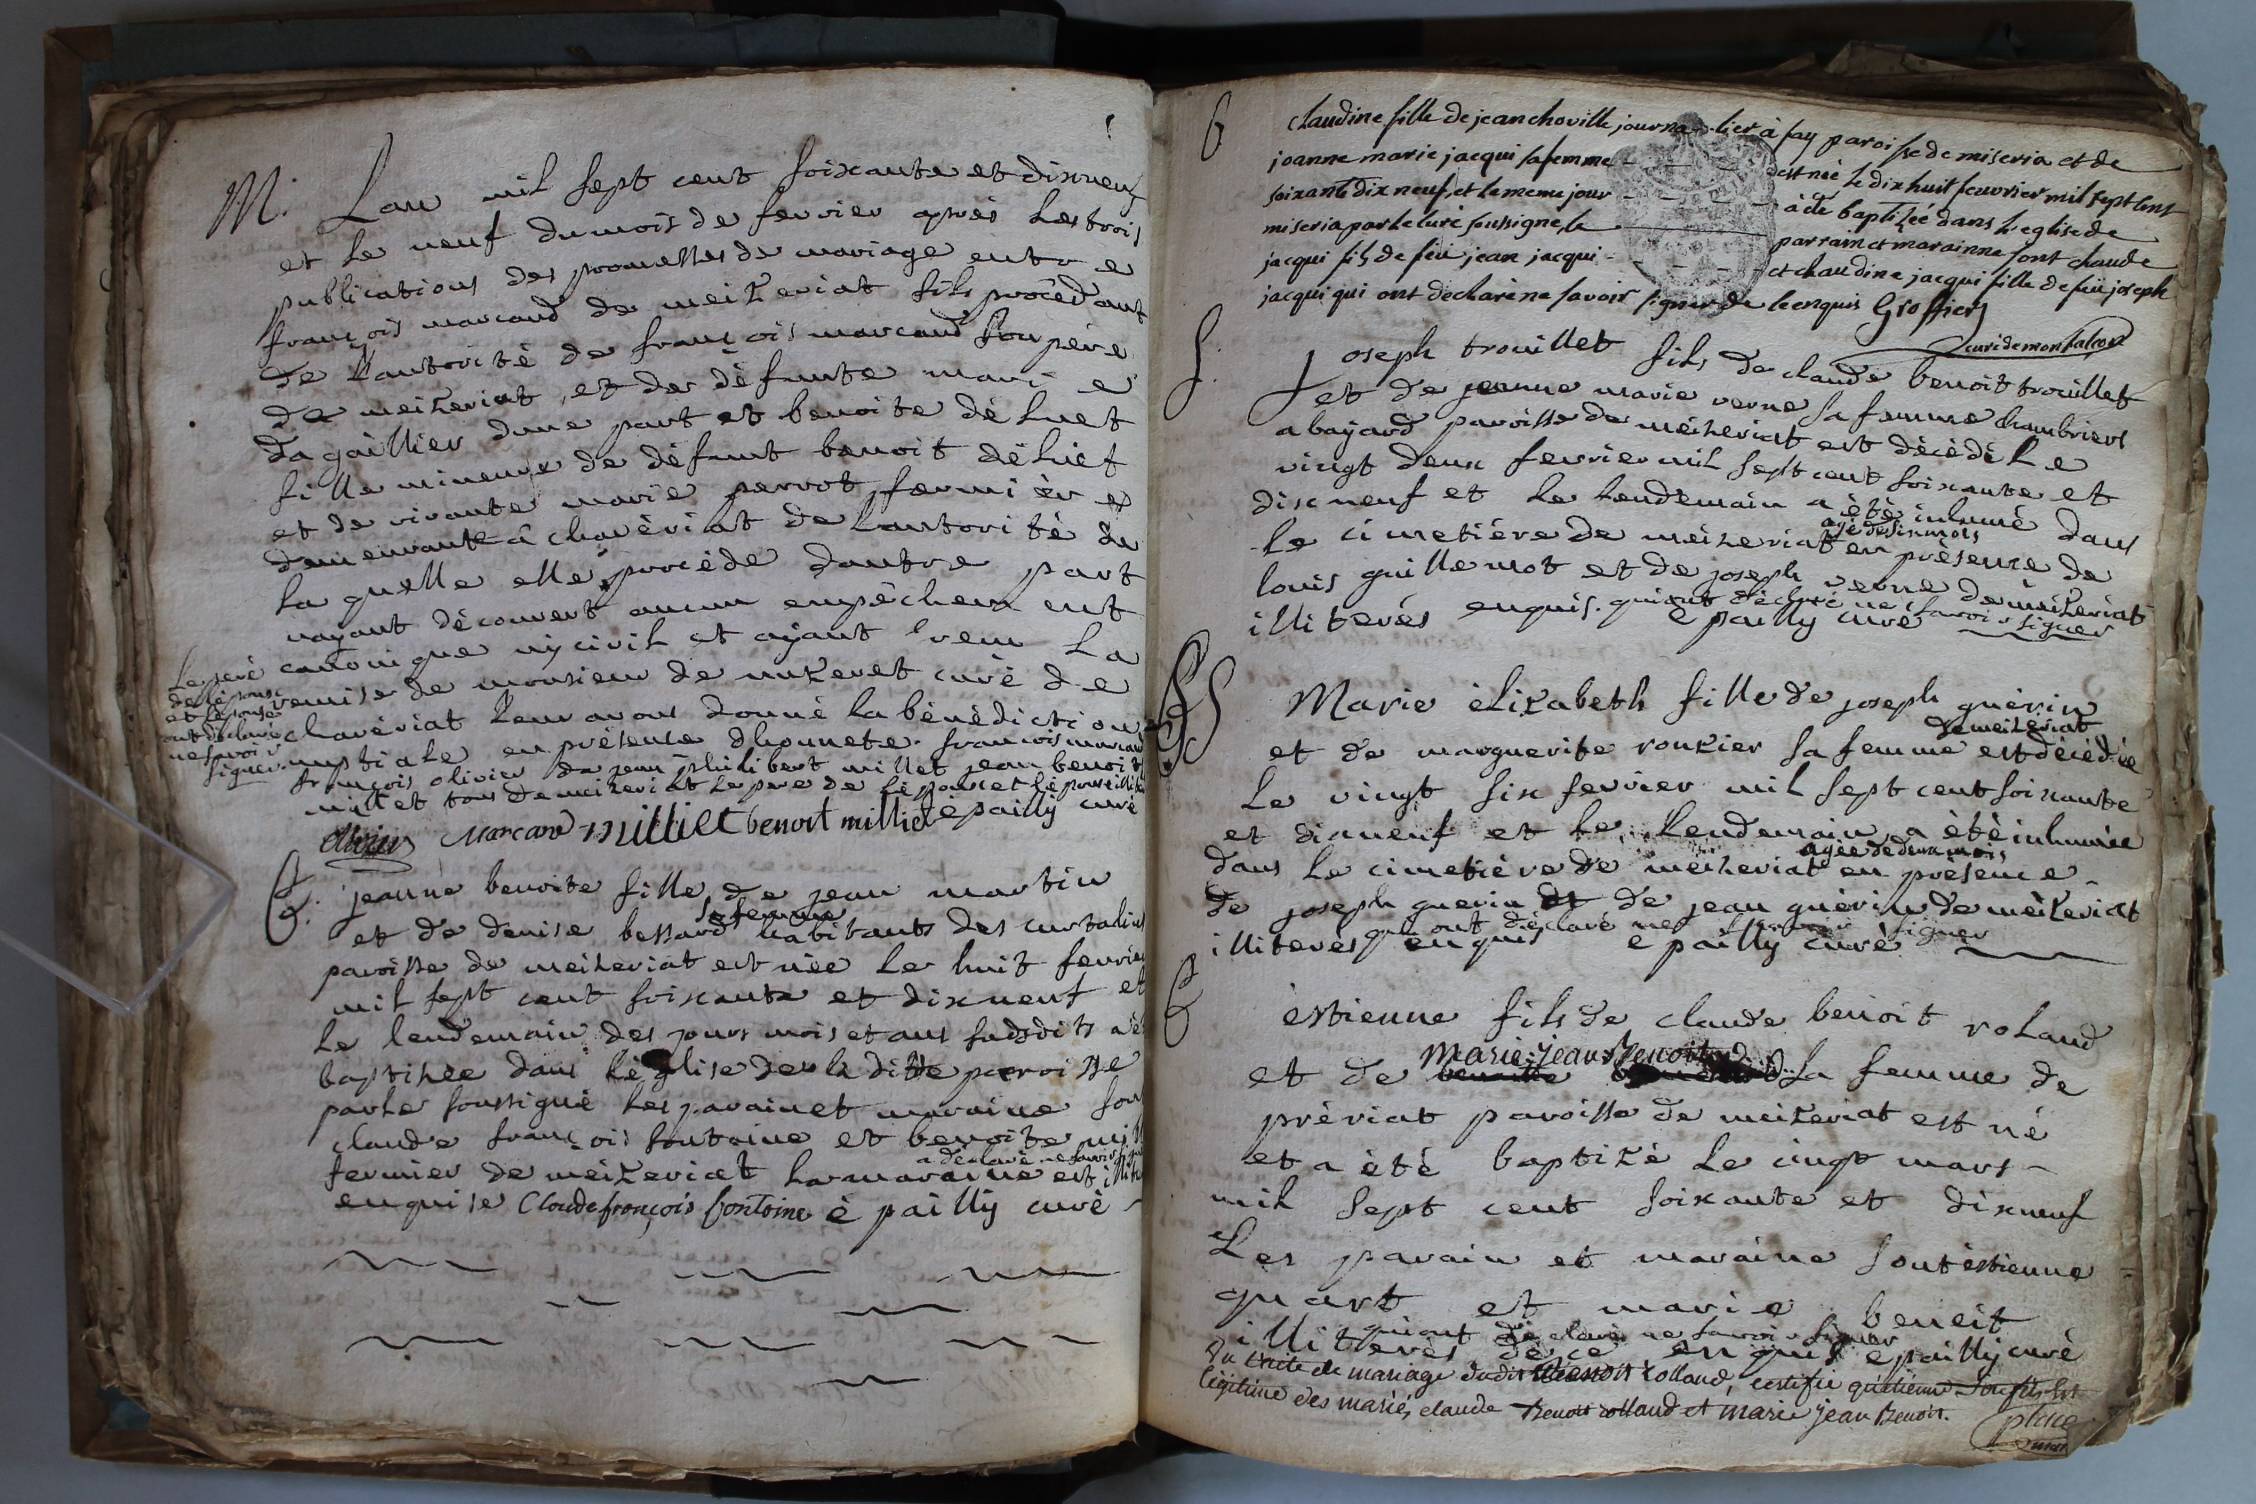 M. Lan mil sept cent soixante et dixneuf
et le neuf dumois de fevrier après les trois
publications des promesses de mariage entre
françois marcand de meizeriat fils procédant
de l'autorité de françois marcand son père
de meizeriat, et de défunte marie
dagaillier dune part et benoite déluet
fille mineure de défunt benoit
et de vivante marie perrot fermière
demeurante à chavériat de lautorité de
la quelle elle procède dautre part
nayant découvert aucun empêchement
canonique ny civil et ayant veu la
remise de monsieur de muzeret curé de
chavériat leur avons donné la bénédiction
nuptiale en présence dhonnete francois marcand
françois olivier de jean philibert millet jean benoit
millet tous demeizeriat le pere de lépouse et lépouse
le pere
de lépouse
et lépouse
ont déclaré
ne savoir
signer
olivier Marcand milliet benoit milliet è pailly curé
B. jeanne benoite fille de jean martin
et de denise bessard sa femme habitants des curtadins
paroisse de meizeriat est née le huit fevrier
mil sept cent soixante et dixneuf et
le lendemain des jours mois et ans susdits a été
baptisée dans léglise de la ditte paroisse
par le soussigné les parain et maraine sont
claude françois fontaine et benoite
fermier de meizeriat la maraine est
a déclaré ne savoir
enquise Claude françois fontaine è pailly curé
B claudine fille de jean choville journalier à fay paroisse de miseria et de
joanne marie jacqui sa femme est née le dix huit feuvrier mil sept cent
soixante dix neuf, et le meme jour à été baptizée dans l'eglise de
miseria par le curé soussigné, le parrain et marainne sont claude
jacqui fils de feu jean jacqui et claudine jacqui fille de feu joseph
jacqui qui ont declaré ne savoir signer de ce enquis Groffier
curé de montalcon
S. Joseph trouillet fils de claude benoit trouillet
et de jeanne marie verne sa femme chambriers
a bayard paroisse de meizeriat est décédé le
vingt deux fevrier mil sept cent soixante et
dixneuf et le lendemain a été inhumé dans
le cimetière de meizeriat agé de six mois en présence de
louis guillemot et de joseph verne demeizeriat
illiterés enquis. qui ont déclaré ne savoir signer
è pailly curé
S Marie élizabeth fille de joseph guérin
demeizeriat
et de marguerite ronzier sa femme est décédée
le vingt six fevrier mil sept cent soixante
et dixneuf et le lendemain a été inhumée
dans le cimetière de meizeriat agée de deux mois en présence
de joseph guerin et de jean guérin de meizeriat
illiterés qui ont déclaré ne savoir signer
enquis è pailly curé
B èstienne fils de claude benoit roland
Marie jean Benoit
et de sa femme de
prèriat paroisse de meizeriat est né
et a été baptizé le cinq mars
mil sept cent soixante et dixneuf
Les parain et maraine sont èstienne
quart et marie beneit
qui ont déclaré ne savoir signer
illiterés de ce enquis è pailly curé
Vu de mariage dudit Benoit rolland, certifie qu'etienne son fils est
légitime des mariés claude Benoit rolland et marie jean Benoit.
place